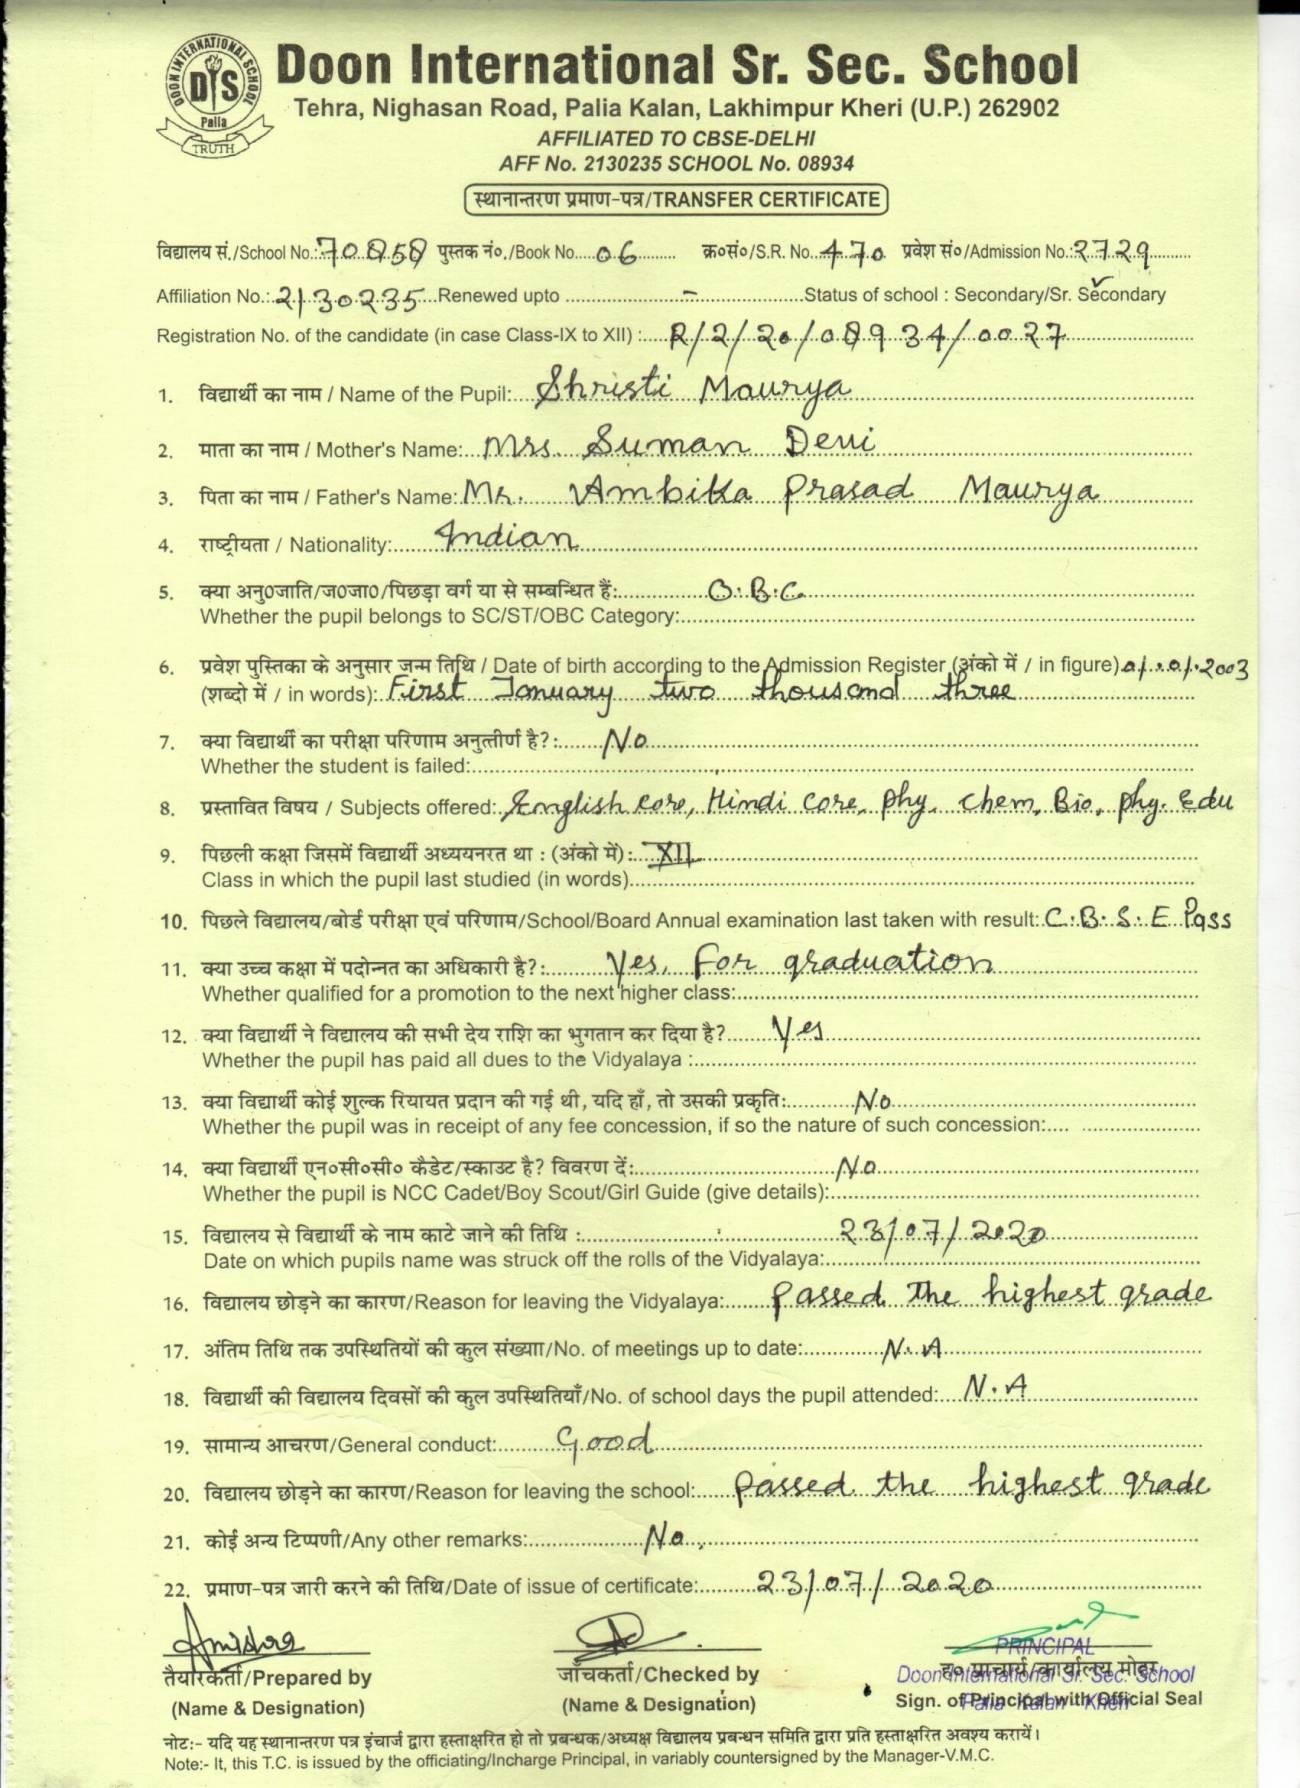 DOON INTERNATIONAL SCHOOL
DIS
Palia
TRUTH
Doon International Sr. Sec. School
Tehra, Nighasan Road, Palia Kalan, Lakhimpur Kheri (U.P.) 262902
AFFILIATED TO CBSE-DELHI
AFF No. 2130235 SCHOOL No. 08934
स्थानान्तरण प्रमाण-पत्र/TRANSFER CERTIFICATE
विद्यालय सं./School No.: 70858 पुस्तक नं०./Book No. 06 क्र०सं०/S.R. No. 470 प्रवेश सं०/Admission No.: 2729
Affiliation No.: 2130235 Renewed upto - Status of school : Secondary/Sr. Secondary
Registration No. of the candidate (in case Class-IX to XII) : R/2/20/08934/0027
1. विद्यार्थी का नाम / Name of the Pupil: Shristi Maurya
2. माता का नाम / Mother's Name: Mrs. Suman Devi
3. पिता का नाम / Father's Name: Mr. Ambika Prasad Maurya
4. राष्ट्रीयता / Nationality: Indian
5. क्या अनु०जाति/ज०जा०/पिछड़ा वर्ग या से सम्बन्धित हैं: O.B.C
Whether the pupil belongs to SC/ST/OBC Category:
6. प्रवेश पुस्तिका के अनुसार जन्म तिथि / Date of birth according to the Admission Register (अंको में / in figure) 01.01.2003
(शब्दो में / in words): First January two thousand three
7. क्या विद्यार्थी का परीक्षा परिणाम अनुत्तीर्ण है?: No
Whether the student is failed:
8. प्रस्तावित विषय / Subjects offered: English core, Hindi core, phy, chem, Bio, phy. Edu
9. पिछली कक्षा जिसमें विद्यार्थी अध्ययनरत था : (अंको में): XII
Class in which the pupil last studied (in words)
10. पिछले विद्यालय/बोर्ड परीक्षा एवं परिणाम/School/Board Annual examination last taken with result: C.B.S.E Pass
11. क्या उच्च कक्षा में पदोन्नत का अधिकारी है?: Yes, For graduation
Whether qualified for a promotion to the next higher class:
12. क्या विद्यार्थी ने विद्यालय की सभी देय राशि का भुगतान कर दिया है? Yes
Whether the pupil has paid all dues to the Vidyalaya :
13. क्या विद्यार्थी कोई शुल्क रियायत प्रदान की गई थी, यदि हाँ, तो उसकी प्रकृति: No
Whether the pupil was in receipt of any fee concession, if so the nature of such concession:
14. क्या विद्यार्थी एन०सी०सी० कैडेट/स्काउट है? विवरण दें: No
Whether the pupil is NCC Cadet/Boy Scout/Girl Guide (give details):
15. विद्यालय से विद्यार्थी के नाम काटे जाने की तिथि : 23/07/2020
Date on which pupils name was struck off the rolls of the Vidyalaya:
16. विद्यालय छोड़ने का कारण/Reason for leaving the Vidyalaya: Passed the highest grade
17. अंतिम तिथि तक उपस्थितियों की कुल संख्याा/No. of meetings up to date: N.A
18. विद्यार्थी की विद्यालय दिवसों की कुल उपस्थितियाँ/No. of school days the pupil attended: N.A
19. सामान्य आचरण/General conduct: Good
20. विद्यालय छोड़ने का कारण/Reason for leaving the school: Passed the highest grade
21. कोई अन्य टिप्पणी/Any other remarks: No
22. प्रमाण-पत्र जारी करने की तिथि/Date of issue of certificate: 23/07/2020
PRINCIPAL
Doon International Sr. Sec. School
Palia Kalan Kheri
तैयारकर्ता/Prepared by जाँचकर्ता/Checked by ह० प्राचार्य/कार्यालय मोहर
(Name & Designation) (Name & Designation) Sign. of Principal with Official Seal
नोटः- यदि यह स्थानान्तरण पत्र इंचार्ज द्वारा हस्ताक्षरित हो तो प्रबन्धक/अध्यक्ष विद्यालय प्रबन्धन समिति द्वारा प्रति हस्ताक्षरित अवश्य करायें।
Note:- It, this T.C. is issued by the officiating/Incharge Principal, in variably countersigned by the Manager-V.M.C.